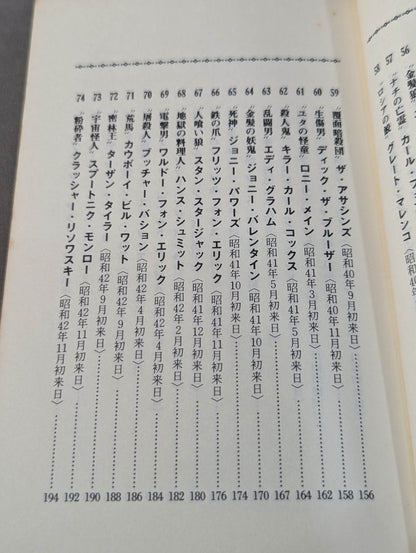 56 "金髪
57 "ナチの亡霊" カール・
58 "ロシアの グレート・マレンコ
59 "覆面暗殺団" ザ・アサシンズ〈昭和40年9月初来日〉………156
60 "生傷男" ディック・ザ・ブルーザー〈昭和40年11月初来日〉………158
61 "ユタの怪童" ロニー・メイン〈昭和41年3月初来日〉………162
62 "殺人鬼" キラー・カール・コックス〈昭和41年5月初来日〉………164
63 "乱闘男" エディ・グラハム〈昭和41年5月初来日〉………167
64 "金髪の妖鬼" ジョニー・バレンタイン〈昭和41年10月初来日〉………170
65 "死神" ジョニー・パワーズ〈昭和41年10月初来日〉………174
66 "鉄の爪" フリッツ・フォン・エリック〈昭和41年11月初来日〉………176
67 "人喰い狼" スタン・スタージャック〈昭和41年12月初来日〉………180
68 "地獄の料理人" ハンス・シュミット〈昭和42年2月初来日〉………182
69 "電撃男" ワルドー・フォン・エリック〈昭和42年4月初来日〉………184
70 "屠殺人" ブッチャー・バション〈昭和42年4月初来日〉………186
71 "荒馬" カウボーイ・ビル・ワット〈昭和42年9月初来日〉………188
72 "密林王" ターザン・タイラー〈昭和42年9月初来日〉………190
73 "宇宙怪人" スプートニク・モンロー〈昭和42年11月初来日〉………192
74 "粉砕者" クラッシャー・リソワスキー〈昭和42年11月初来日〉………194